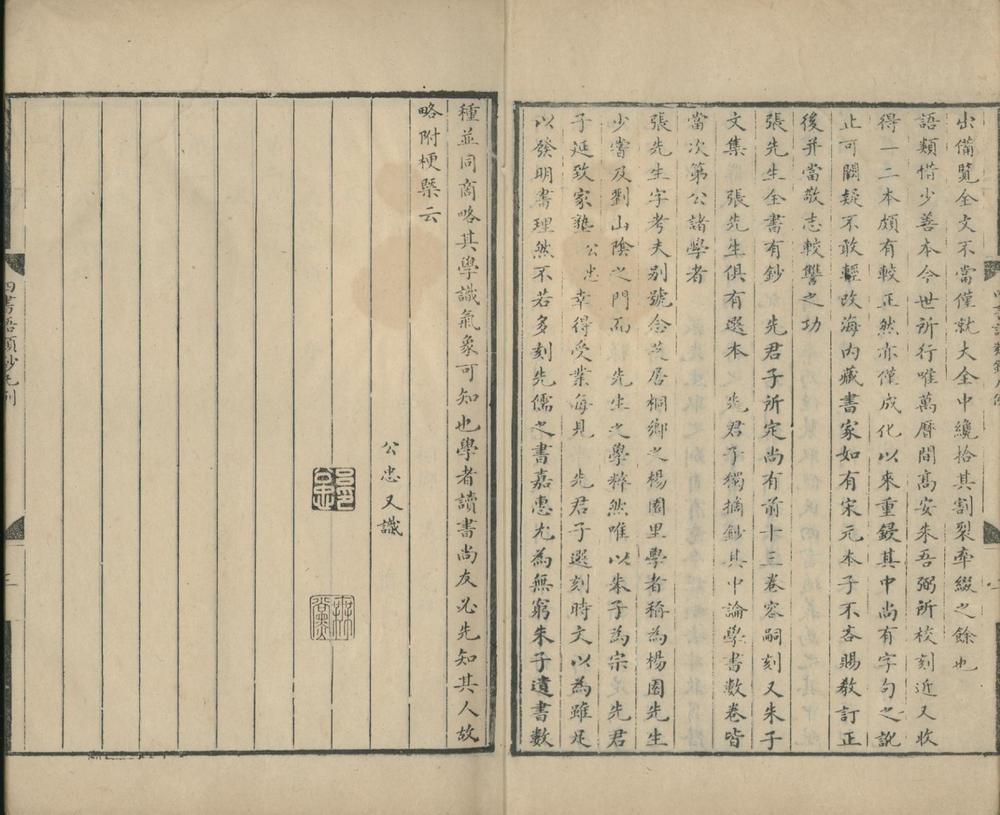 出備覽全文不當僅就大全中纔拾其割裂牽綴之餘也
語類惜少善本今世所行唯萬曆間高安朱吾弼所校刻近又收
得一二本頗有較正然亦僅成化以來重鋟其中尚有字句之訛
止可闕疑不敢輕改海內藏書家如有宋元本子不吝賜教訂正
後并當敬志較讐之功
張先生全書有鈔　先君子所定尚有前十三卷容嗣刻又朱子
文集　張先生俱有選本　先君子獨摘鈔其中論學書數卷皆
當次第公諸學者
張先生字考夫別號念芝居桐鄉之楊園里學者稱為楊園先生
少嘗及劉山陰之門而　先生之學粹然唯以朱子為宗　先君
子延致家塾公忠幸得受業每見　先君子選刻時文以為雖足
以發明書理然不若多刻先儒之書嘉惠尤為無窮朱子遺書數
種並同商略其學識氣象可知也學者讀書尚友必先知其人故
略附梗槩云
公忠又識
四書語類鈔凡例
三